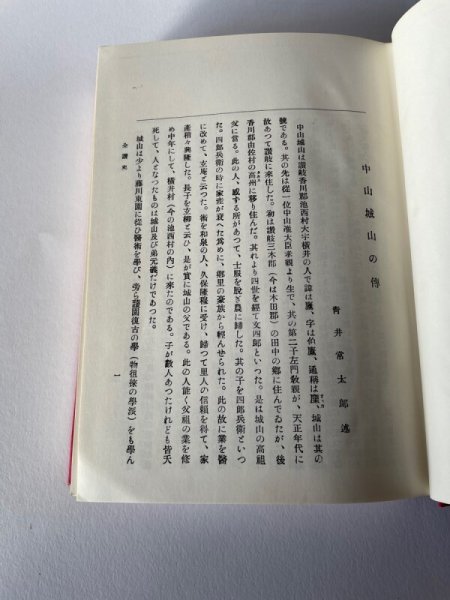 中山城山の傳
青井常太郎述
中山城山は讃岐香川郡池西村大字横井の人で諱は鷹、字は伯鷹、通稱は塵、城山は其の
號である。其の先は從一位中山准大臣孝親より生で、其の第二子左門敎親が、天正年代に
故あつて讃岐に來住した。初は讃岐三木郡（今は木田郡）の田中の郷に住んでゐたが、後
香川郡由佐村の高州に移り住んだ。其れより四世を經て文四郎といつた。是は城山の高祖
父に當る。此の人、感する所があつて、士服を脱ぎ農に歸した。其の子を四郎兵衛といつ
た。四郎兵衛の時に家産が衰へた爲めに、郷里の豪族から輕んぜられた。此の故に業を醫
に改めて、玄庵と云つた。術を和泉の人、久保隆穩に受け、歸つて里人の信頼を得て、家
產稍々興隆した。長子を玄柳と云ひ、是が實に城山の父である。此の人能く父祖の業を修
め中年にして、横井村（今の池西村の內）に來たのである。子が數人あつたけれども皆夭
死して、人となつたものは城山及び弟元義だけであつた。
城山は少より藤川東園に從ひ醫術を學び、旁ら蘐園復古の學（物徂徠の學派）をも學ん
全讃史
一